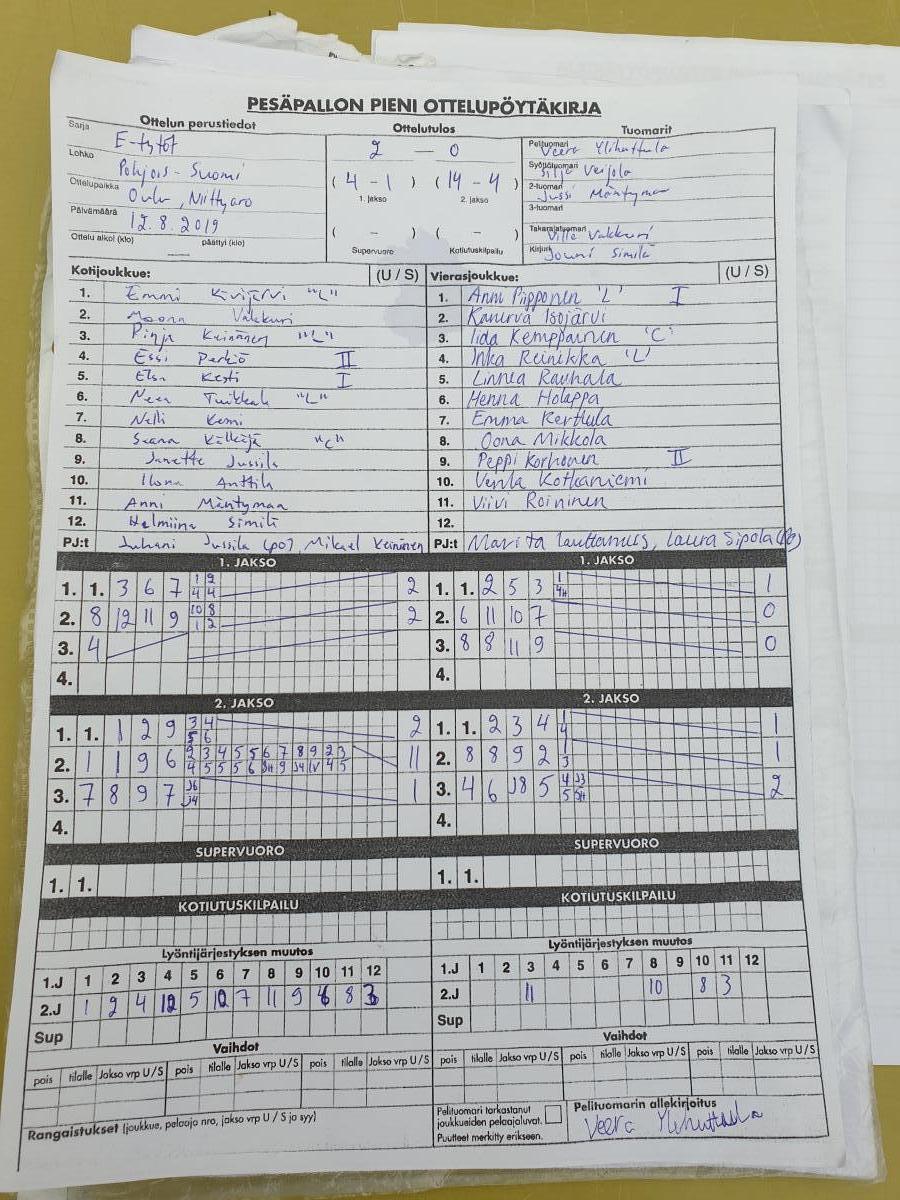 PESÄPALLON PIENI OTTELUPÖYTÄKIRJA
Ottelun perustiedot
Sarja E-tytöt
Lohko Pohjois-Suomi
Ottelupaikka Oulu, Niittyaro
Päivämäärä 12.8.2019
Ottelu alkoi (klo) — päättyi (klo)
Ottelutulos
2 — 0
(4 - 1) (14 - 4)
1. jakso 2. jakso
( - ) ( - )
Supervuoro Kotiutuskilpailu
Tuomarit
Pelituomari Veera Ylihuttula
Syöttötuomari Silja Veijola
2-tuomari Jussi Mäntymaa
3-tuomari
Takarajatuomari Ville Vakkuri
Kirjuri Jouni Similä
Kotijoukkue: (U / S)
1. Emmi Kivijärvi "L"
2. Moona Vakkuri
3. Pinja Keinänen "L"
4. Essi Perkiö II
5. Elsa Kesti I
6. Neea Tuikkala "L"
7. Nelli Kemi
8. Saana Kälkäjä "C"
9. Janette Jussila
10. Ilona Anttila
11. Anni Mäntymaa
12. Helmiina Similä
PJ:t Juhani Jussila (po), Mikael Keinänen
Vierasjoukkue: (U / S)
1. Anni Piipponen 'L' I
2. Kanerva Isojärvi
3. Iida Kemppainen 'C'
4. Inka Reinikka 'L'
5. Linnea Rauhala
6. Henna Holappa
7. Emma Kerttula
8. Oona Mikkola
9. Peppi Korhonen II
10. Venla Kotkaniemi
11. Viivi Roininen
12.
PJ:t Marita Lauttamus, Laura Sipola
1. JAKSO
1. 1. 3 6 7 1 2 2
4 4
2. 8 12 11 9 10 8 2
1 2
3. 4
4.
1. JAKSO
1. 1. 2 5 3 1 1
4H
2. 6 11 10 7 0
3. 8 8 11 9 0
4.
2. JAKSO
1. 1. 1 2 9 3 4 2
5 6
2. 1 1 9 6 2 3 4 5 5 6 7 8 9 2 3 11
4 5 5 5 6 JH 9 J4 IV 4 5
3. 7 8 9 7 J6 1
J4
4.
2. JAKSO
1. 1. 2 3 4 1 1
4
2. 8 8 9 2 1 1
3
3. 4 6 J8 5 4 J3 2
5 5H
4.
SUPERVUORO
1. 1.
SUPERVUORO
1. 1.
KOTIUTUSKILPAILU
KOTIUTUSKILPAILU
Lyöntijärjestyksen muutos
1.J 1 2 3 4 5 6 7 8 9 10 11 12
2.J 1 2 4 12 5 10 7 11 9 6 8 3
Sup
Lyöntijärjestyksen muutos
1.J 1 2 3 4 5 6 7 8 9 10 11 12
2.J 11 10 8 3
Sup
Vaihdot
pois tilalle Jakso vrp U / S pois tilalle Jakso vrp U / S pois tilalle Jakso vrp U / S
Vaihdot
pois tilalle Jakso vrp U / S pois tilalle Jakso vrp U / S pois tilalle Jakso vrp U / S
Rangaistukset (joukkue, pelaaja nro, jakso vrp U / S ja syy)
Pelituomari tarkastanut
joukkueiden pelaajaluvat.
Puutteet merkitty erikseen.
Pelituomarin allekirjoitus
Veera Ylihuttula